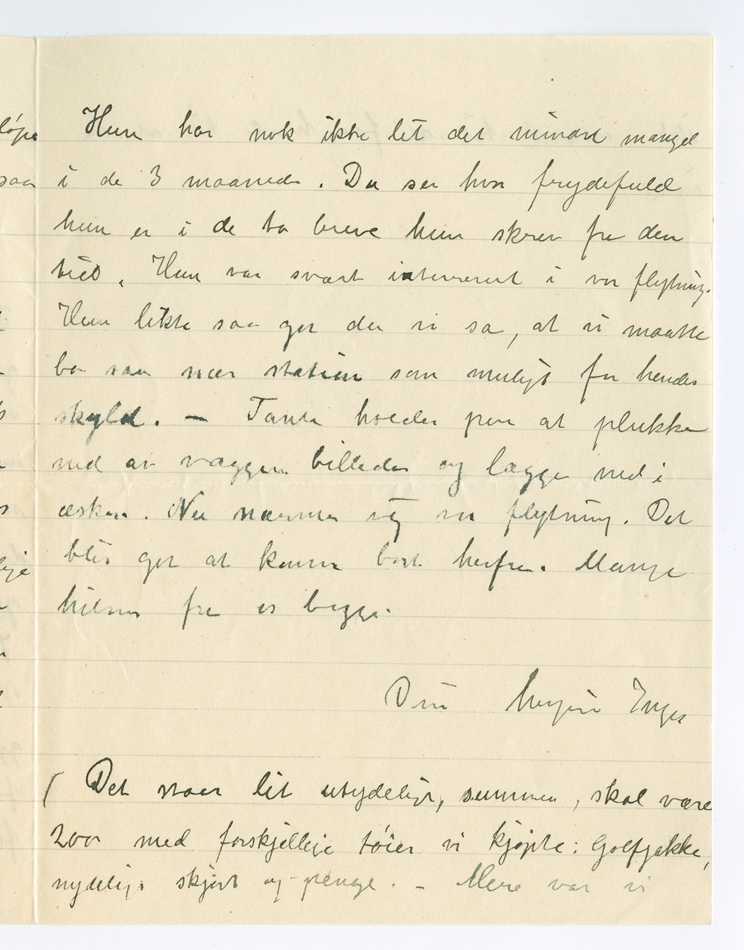 Hun har nok ikke let det mindste mangel
i de 3 maaneder. Du ser hvor frydefuld
hun er i de to breve hun skrev fra den
tid. Hun var svært interessert i vor flytning.
Hun likte saa got der vi sa, at vi maatte
bo saa nær station som muligt for hendes
skyld. – Tante holder paa at plukke
ned av væggen billeder og lægge ned i
æsken. Nu nærmer sig vor flytning. Det
blir got at komme bort herfra. Mange
hilsner fra os begge.
Din Inga
( Det staar lit utydelig, summen, skal være
200 med forskjellige tøier vi kjøpte: Golfjakke,
nydelig skjørt og penge. – Mere var vi